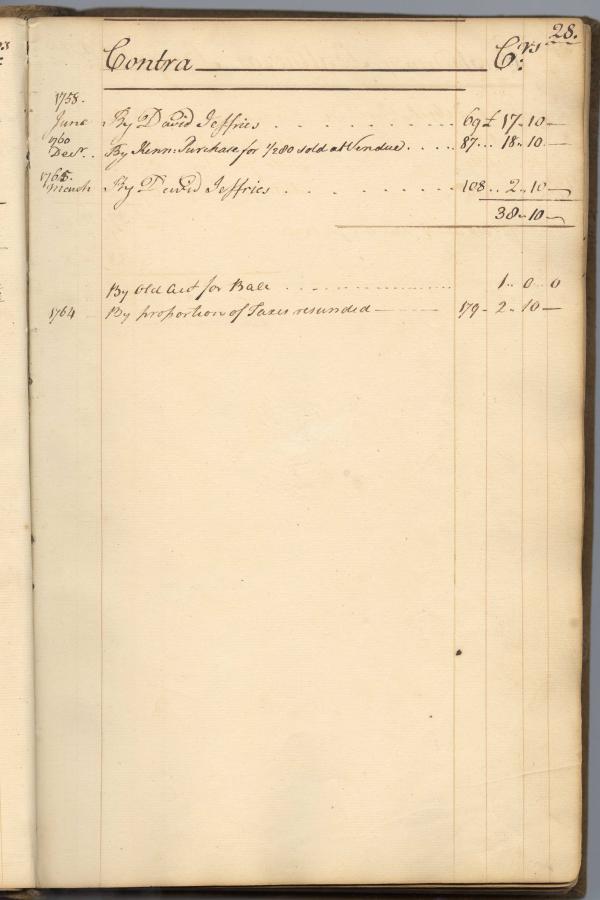 28.
Contra Crs
1758.
June By David Jeffries 69 £ 17.. 10
1760
Decr.. By Kenn: Purchase for 1/280 sold at Vendue 87... 18.. 10
1765.
March By David Jeffries 108.. 2.. 10
38.. 10
By Old Acct for Balle 1.. 0.. 0
1764 By proportion of Taxes refunded 179.. 2.. 10